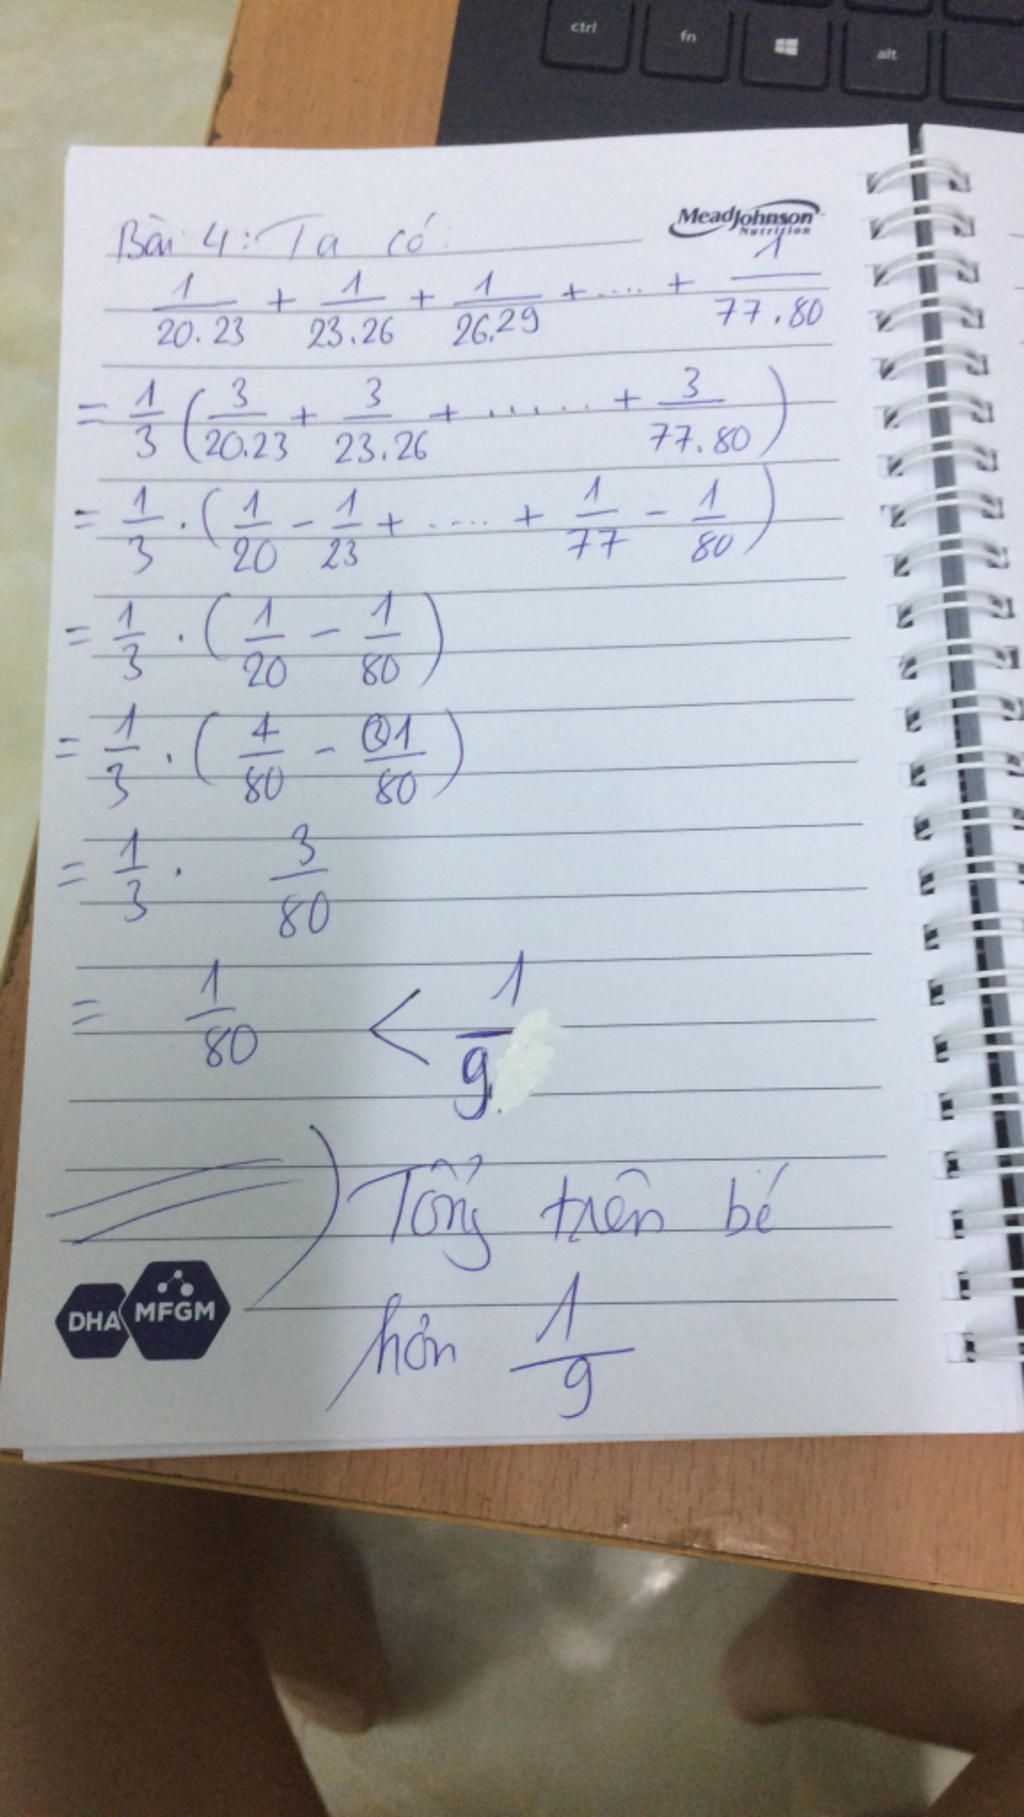 ctrl fn alt
MeadJohnson
Nutrition
Bài 4: Ta có:
1/20.23 + 1/23.26 + 1/26.29 + .... + 1/77.80
= 1/3 (3/20.23 + 3/23.26 + ...... + 3/77.80)
= 1/3 . (1/20 - 1/23 + .... + 1/77 - 1/80)
= 1/3 . (1/20 - 1/80)
= 1/3 . (4/80 - 1/80)
= 1/3 . 3/80
= 1/80 < 1/9
Tổng trên bé
hơn 1/9
DHA MFGM